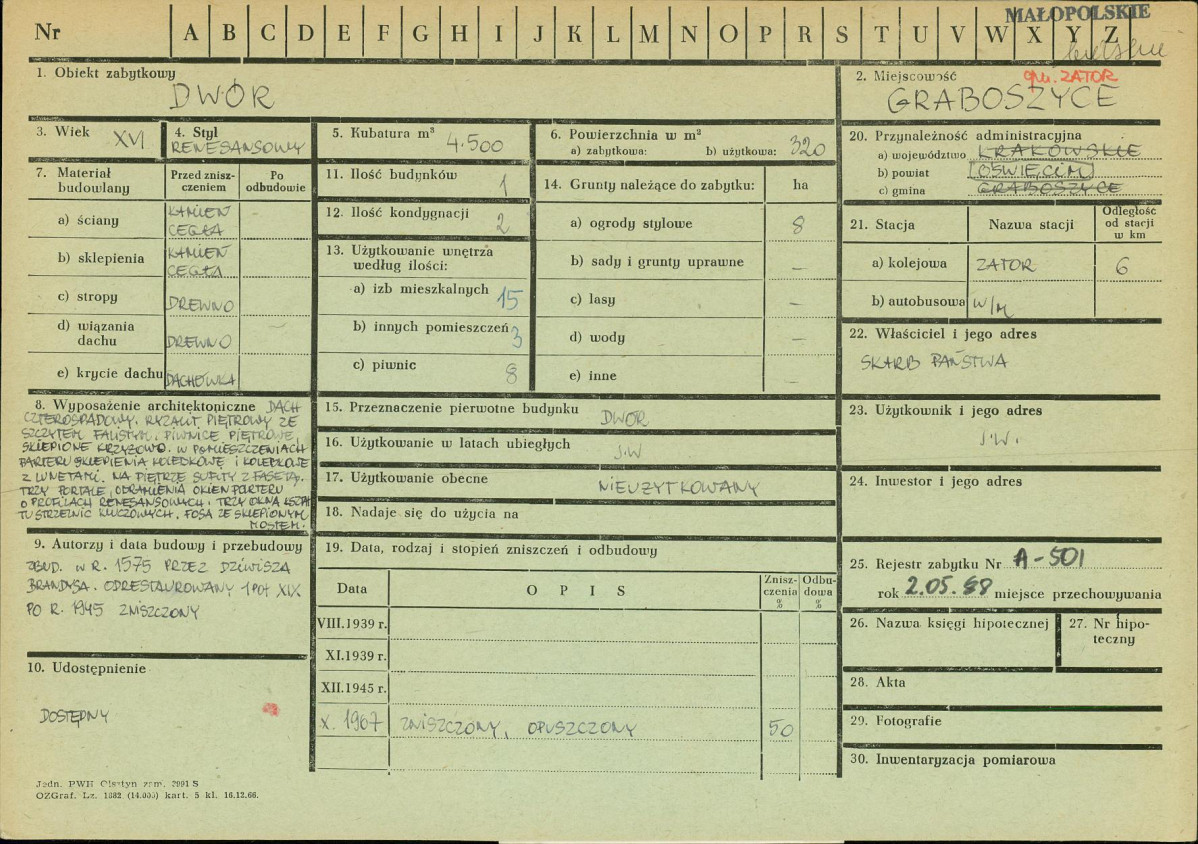 MAŁOPOLSKIE
Nr A B C D E F G H I J K L M N O P R S T U V W X Y Z
bielskie
1. Obiekt zabytkowy
DWÓR
2. Miejscowość
gm. ZATOR
GRABOSZYCE
3. Wiek XVI
4. Styl
RENESANSOWY
5. Kubatura m³
4.500
6. Powierzchnia w m²
a) zabytkowa: b) użytkowa: 320
7. Materiał budowlany
Przed zniszczeniem
Po odbudowie
a) ściany KAMIEŃ CEGŁA -
b) sklepienia KAMIEŃ CEGŁA
c) stropy DREWNO
d) wiązania dachu DREWNO -
e) krycie dachu DACHÓWKA
8. Wyposażenie architektoniczne DACH
CZTEROSPADOWY. RYZALIT PIĘTROWY ZE
SZCZYTEM FALISTYM. PIWNICE PIĘTROWE
SKLEPIONE KRZYŻOWO. W POMIESZCZENIACH
PARTERU SKLEPIENIA KOLEBKOWE I KOLEBKOWE
Z LUNETAMI. NA PIĘTRZE SUFITY Z FASETĄ.
TRZY PORTALE, OBRAMIENIA OKIEN PARTERU
O PROFILACH RENESANSOWYCH. TRZY OKNA KSZTAŁ
TU STRZELNIC KLUCZOWYCH. FOSA ZE SKLEPIONYM
MOSTEM.
9. Autorzy i data budowy i przebudowy
ZBUD. W R. 1575 PRZEZ DZIWISZA
BRANDYSA. ODRESTAUROWANY 1 POŁ XIX
PO R. 1945 ZNISZCZONY
10. Udostępnienie
DOSTĘPNY
11. Ilość budynków 1
12. Ilość kondygnacji 2
13. Użytkowanie wnętrza
według ilości:
a) izb mieszkalnych 15
b) innych pomieszczeń 3
c) piwnic 8
14. Grunty należące do zabytku: ha
a) ogrody stylowe 8
b) sady i grunty uprawne -
c) lasy -
d) wody -
e) inne -
15. Przeznaczenie pierwotne budynku DWÓR
16. Użytkowanie w latach ubiegłych J.W
17. Użytkowanie obecne NIEUŻYTKOWANY
18. Nadaje się do użycia na
19. Data, rodzaj i stopień zniszczeń i odbudowy
Data OPIS Zniszczenia % Odbudowa %
VIII.1939 r.
XI.1939 r.
XII.1945 r.
X. 1967 ZNISZCZONY, OPUSZCZONY 50
20. Przynależność administracyjna
a) województwo KRAKOWSKIE
b) powiat OŚWIĘCIM
c) gmina GRABOSZYCE
21. Stacja Nazwa stacji Odległość od stacji w km
a) kolejowa ZATOR 6
b) autobusowa W/M
22. Właściciel i jego adres
SKARB PAŃSTWA
23. Użytkownik i jego adres
J.W.
24. Inwestor i jego adres
25. Rejestr zabytku Nr A-501
rok 2.05.88 miejsce przechowywania
26. Nazwa księgi hipotecznej
27. Nr hipoteczny
28. Akta
29. Fotografie
30. Inwentaryzacja pomiarowa
Jedn. PWH Olsztyn zam. 2991 S
OZGraf. Lz. 1882 (14.000) kart. 5 kl. 16.12.66.